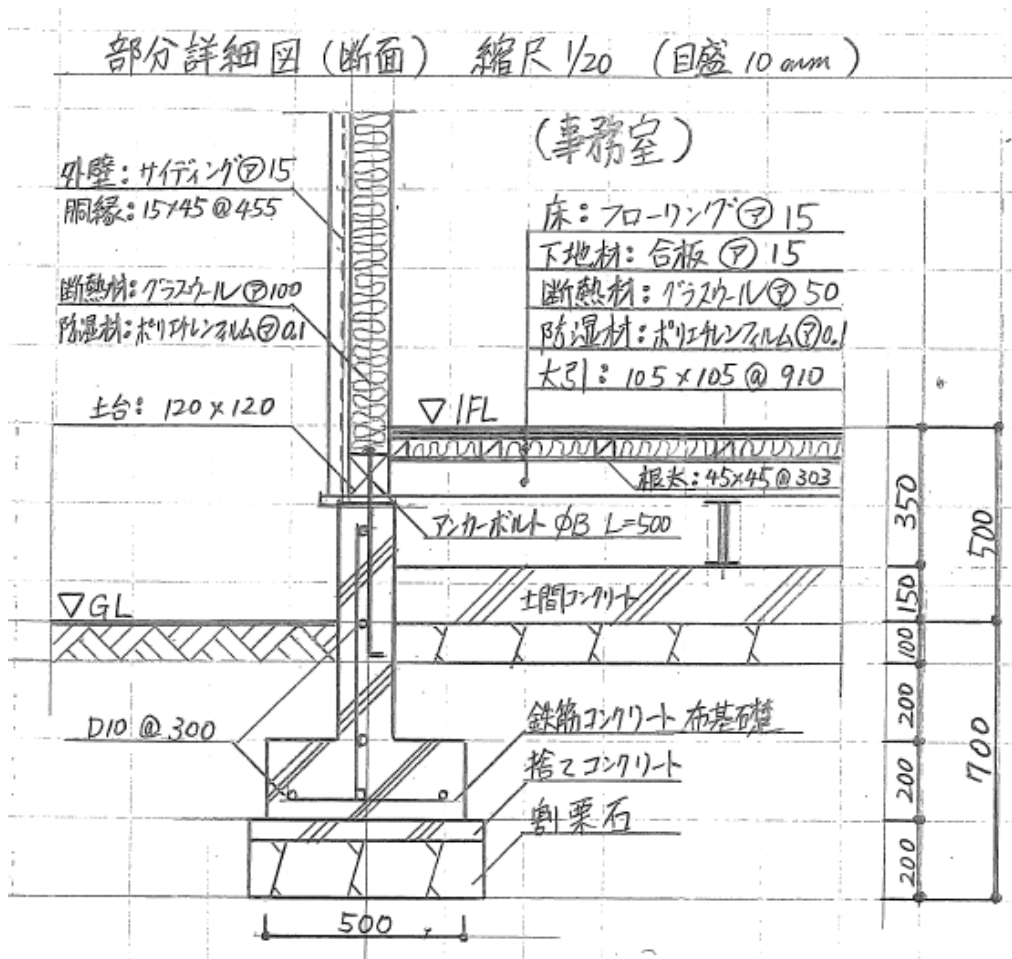 部分詳細図(断面) 縮尺 1/20 (目盛 10mm)
(事務室)
外壁:サイディング㋐15
胴縁:15×45@455
断熱材:グラスウール㋐100
防湿材:ポリエチレンフィルム㋐0.1
土台:120×120
床:フローリング㋐15
下地材:合板㋐15
断熱材:グラスウール㋐50
防湿材:ポリエチレンフィルム㋐0.1
大引:105×105@910
▽1FL
根太:45×45@303
アンカーボルト φ13 L=500
▽GL
土間コンクリート
D10@300
鉄筋コンクリート布基礎
捨てコンクリート
割栗石
500
350
150
100
200
200
200
500
700